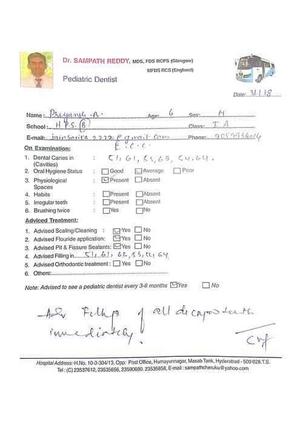 Dr. SAMPATH REDDY, MDS, FDS RCPS (Glasgow)
MFDS RCS (England)
Pediatric Dentist
Date:
Name: Priyansh A. Age: 6 Sex: M
School: H.P.S (R) Class: I A
E-mail: Phone:
On Examination: E.C.C
1. Dental Caries in (Cavities) :
2. Oral Hygiene Status : Good Average Poor
3. Physiological Spaces : Present Absent
4. Habits : Present Absent
5. Irregular teeth : Present Absent
6. Brushing twice : Yes No
Adviced Treatment:
1. Adviced Scaling/Cleaning : Yes No
2. Adviced Fluoride application: Yes No
3. Adviced Pit & Fissure Sealants: Yes No
4. Adviced Filling in
5. Adviced Orthodontic treatment : Yes No
6. Others:
Note: Advised to see a pediatric dentist every 3-6 months Yes No
of all decayed teeth
immediately.
Hospital Address: H.No. 10-3-304/13, Opp: Post Office, Humayunnagar, Masab Tank, Hyderabad - 500 028.T.S.
Tel.: (C) 23537612, 23535656, 23590680, 23535858, E-mail : sampathcheruku@yahoo.com